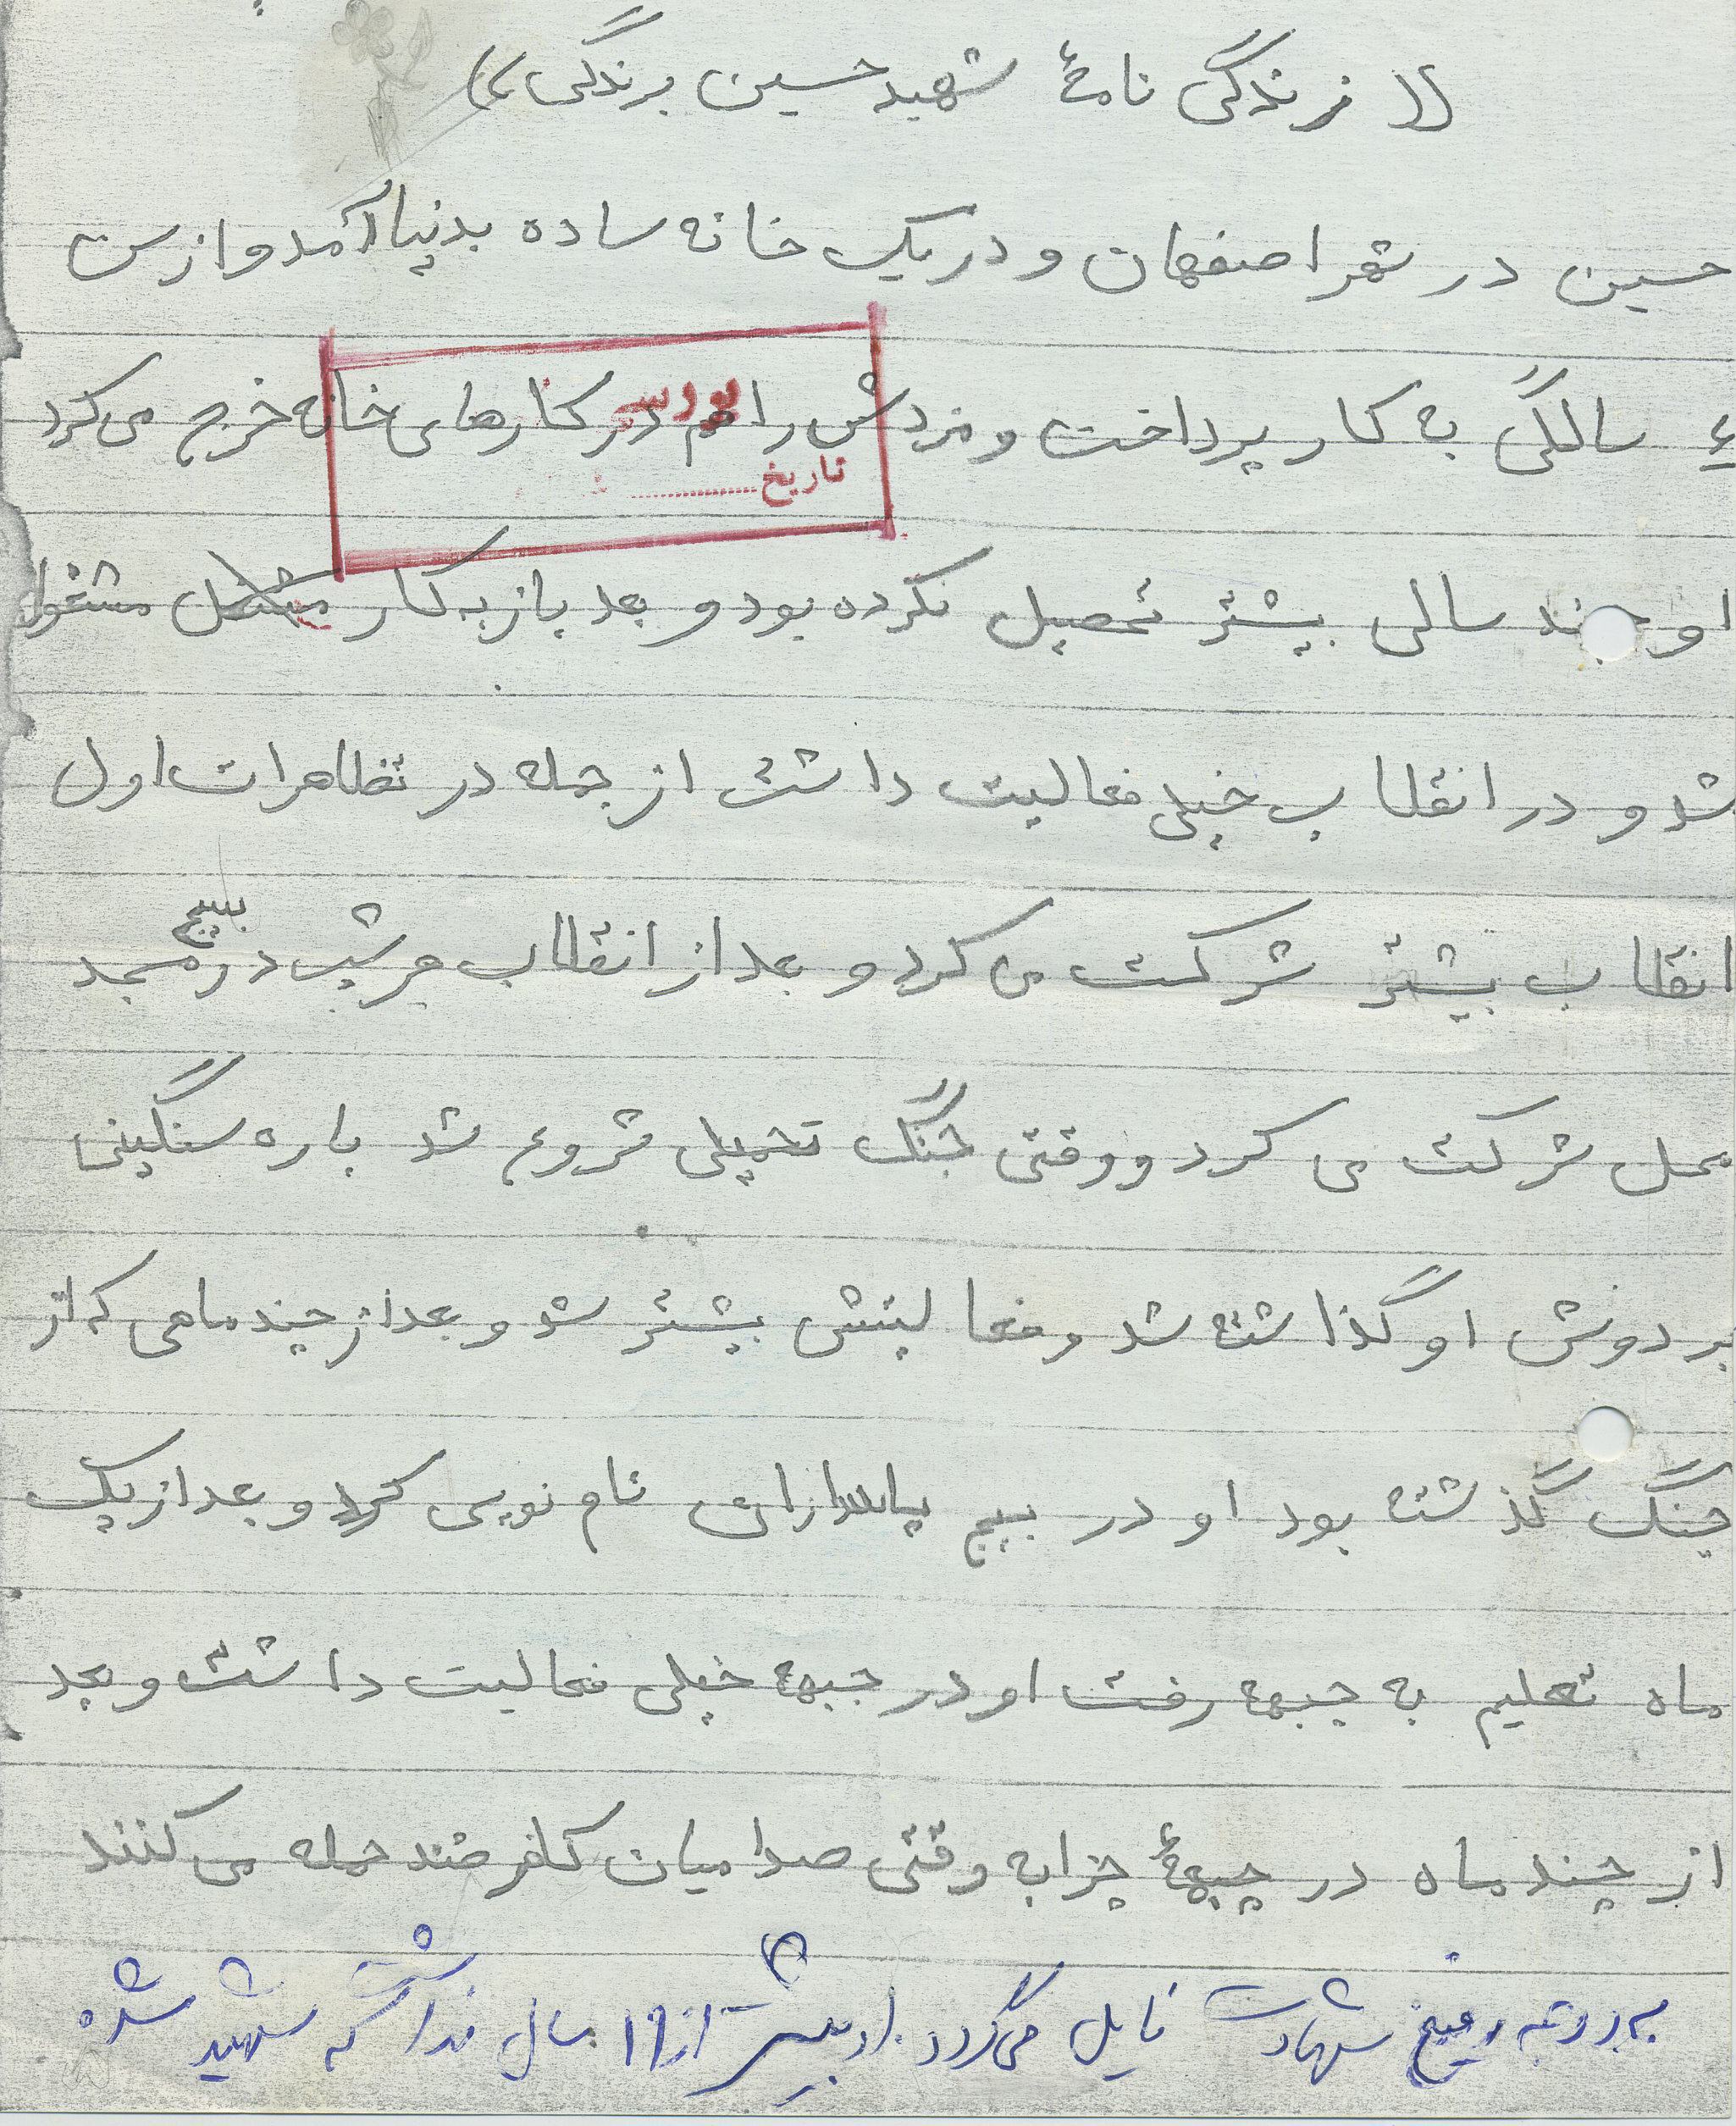 (( زندگی نامهٔ شهید حسین برندگی ))
حسین در شهر اصفهان و در یک خانه ساده بدنیا آمد و از سن
۴ سالگی به کار پرداخت و مزدش را هم در کارهای خانه خرج می‌کرد
بررسی
تاریخ ..............
او چند سالی بیشتر تحصیل نکرده بود و بعد باز به کار مشغول
شد و در انقلاب خیلی فعالیت داشت از جمله در تظاهرات اول
انقلاب بیشتر شرکت می کرد و بعد از انقلاب هر شب در بسیج مسجد
محل شرکت می کرد و وقتی جنگ تحمیلی شروع شد باره سنگینی
بر دوش او گذاشته شد و فعالیتش بیشتر شد و بعد از چند ماهی که از
جنگ گذشته بود او در بسیج پاسداران نام نویسی کرد و بعد از یک
ماه تعلیم به جبهه رفت او در جبهه خیلی فعالیت داشت و بعد
از چند ماه در جبههٔ چزابه وقتی صدامیان کافر ضد حمله می کنند
به درجه رفیع شهادت نایل می‌گردد. او بیشتر از ۱۹ سال نداشت که شهید شد.